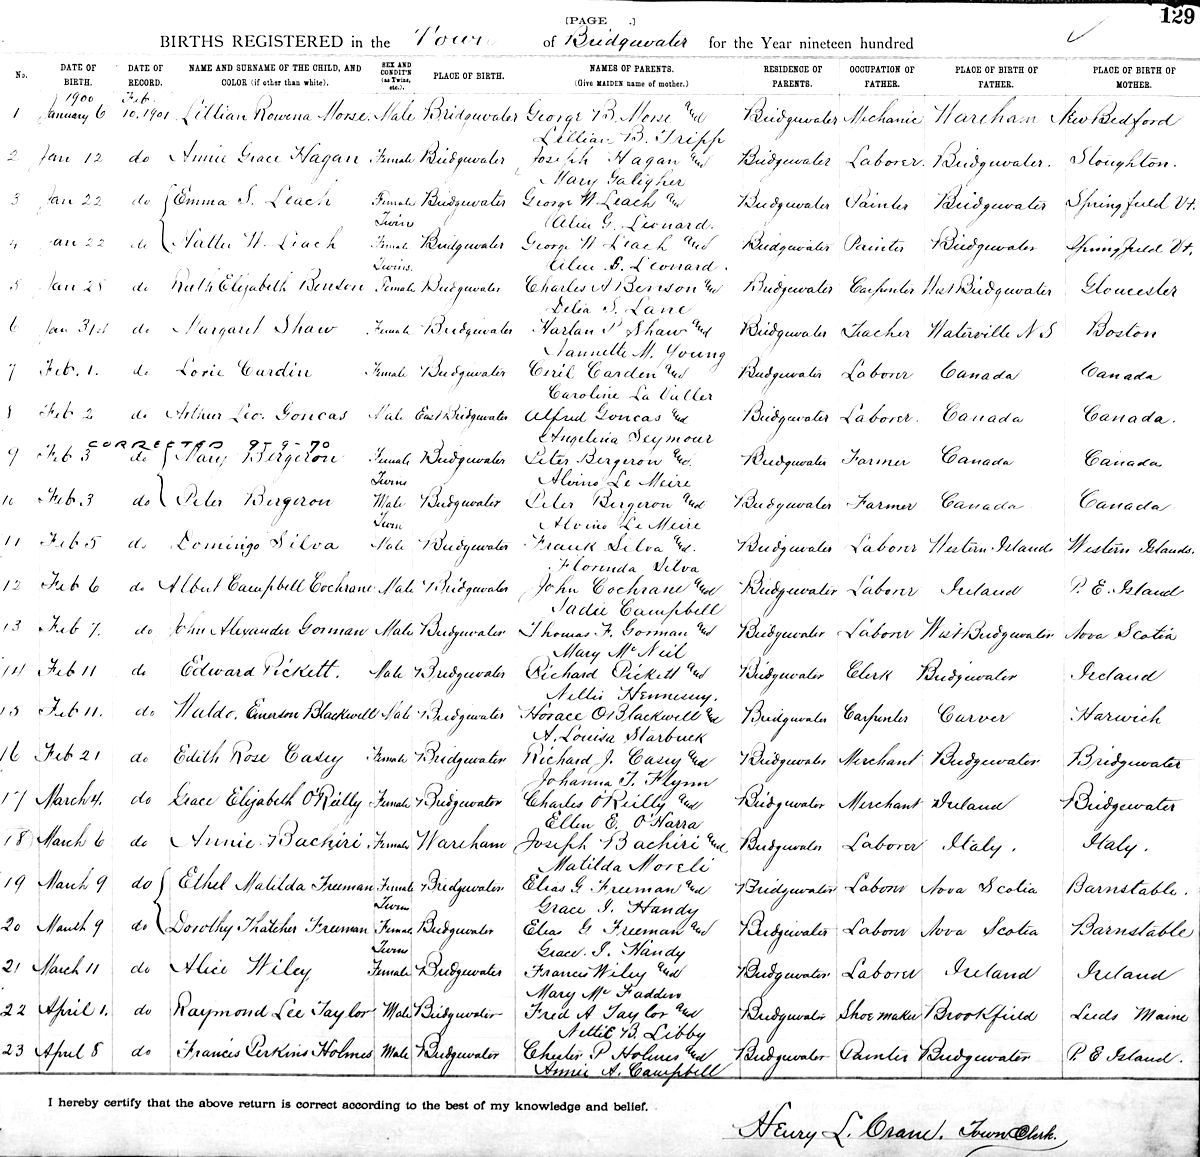 129
[PAGE .]
BIRTHS REGISTERED in the Town of Bridgewater for the Year nineteen hundred
No. DATE OF BIRTH. DATE OF RECORD. NAME AND SURNAME OF THE CHILD, AND COLOR (if other than white). SEX AND CONDIT'N (as Twins, etc.). PLACE OF BIRTH. NAMES OF PARENTS. (Give MAIDEN name of mother.) RESIDENCE OF PARENTS. OCCUPATION OF FATHER. PLACE OF BIRTH OF FATHER. PLACE OF BIRTH OF MOTHER.
1900 Feb.
1 January 6 10, 1901 Lillian Rowena Morse. Male Bridgewater George B. Morse and Bridgewater Mechanic Wareham New Bedford
Lillian B. Tripp
2 Jan 12 do Annie Grace Hagan Female Bridgewater Joseph Hagan and Bridgewater Laborer. Bridgewater. Stoughton.
Mary Galigher
3 Jan 22 do Emma S. Leach Female Bridgewater George W Leach and Bridgewater Painter Bridgewater Springfield Vt.
Twin Alice G. Leonard.
4 Jan 22 do Hattie W. Leach Female Bridgewater George W Leach and Bridgewater Painter Bridgewater Springfield Vt.
Twins. Alice G. Leonard.
5 Jan 28 do Ruth Elizabeth Benson Female Bridgewater Charles A Benson and Bridgewater Carpenter West Bridgewater Gloucester
Delia S. Lane
6 Jan 31st do Margaret Shaw Female Bridgewater Harlan P Shaw and Bridgewater Teacher Waterville N S Boston
Nannette M. Young
7 Feb. 1. do Lorie Cardin Female Bridgewater Ceril Carden and Bridgewater Laborer Canada Canada
Caroline La Valler
8 Feb 2 do Arthur Leo. Goncas Male East Bridgewater Alfred Goncas and Bridgewater Laborer. Canada Canada.
Angelina Seymour
CORRECTED 9-9-70
9 Feb 3 do Mary Bergeron Female Bridgewater Peter Bergeron and. Bridgewater Farmer Canada Canada
Twins Alvino Le Meire
10 Feb. 3 do Peter Bergeron Male Bridgewater Peter Bergeron and Bridgewater Farmer Canada Canada
Twin Alvino Le Meire
11 Feb 5 do Domingo Silva Male Bridgewater Frank Silva and. Bridgewater Laborer Western Islands Western Islands.
Florinda Silva
12 Feb 6 do Albert Campbell Cochrane Male Bridgewater John Cochrane and Bridgewater Laborer Ireland P. E. Island
Sadie Campbell
13 Feb 7. do John Alexander Gorman Male Bridgewater Thomas F. Gorman and Bridgewater Laborer West Bridgewater Nova Scotia
Mary McNeil
14 Feb 11 do Edward Pickett. Male Bridgewater Richard Pickett and Bridgewater Clerk Bridgewater Ireland
Nellie Hennessy.
15 Feb 11. do Waldo. Emerson Blackwell Male Bridgewater Horace O Blackwell and Bridgewater Carpenter Carver Harwich
A. Louisa Starbuck
16 Feb 21 do Edith Rose Casey Female Bridgewater Richard J. Casey and Bridgewater Merchant Bridgewater Bridgewater
Johanna T. Flynn
17 March 4. do Grace Elizabeth O'Reilly Female Bridgewater Charles O'Reilly and Bridgewater Merchant Ireland Bridgewater
Ellen E. O'Harra
18 March 6 do Annie Bachiri Female Wareham Joseph Bachiri and Bridgewater Laborer Italy. Italy.
Matilda Moreli
19 March 9 do Ethel Matilda Freeman Female Bridgewater Elias G Freeman and Bridgewater Laborer Nova Scotia Barnstable.
Twins Grace I. Handy
20 March 9 do Dorothy Thatcher Freeman Female Bridgewater Elias G Freeman and Bridgewater Laborer Nova Scotia Barnstable
Twins Grace. I. Handy
21 March 11 do Alice Wiley Female Bridgewater Francis Wiley and Bridgewater Laborer Ireland Ireland
Mary Mc Fadden
22 April 1. do Raymond Lee Taylor Male Bridgewater Fred A Taylor and Bridgewater Shoemaker Brookfield Leeds Maine
Nettie B. Libby
23 April 8 do Francis Perkins Holmes Male Bridgewater Chester P Holmes and Bridgewater Painter Bridgewater P. E Island.
Annie A. Campbell
I hereby certify that the above return is correct according to the best of my knowledge and belief.
Henry L. Crane. Town Clerk.